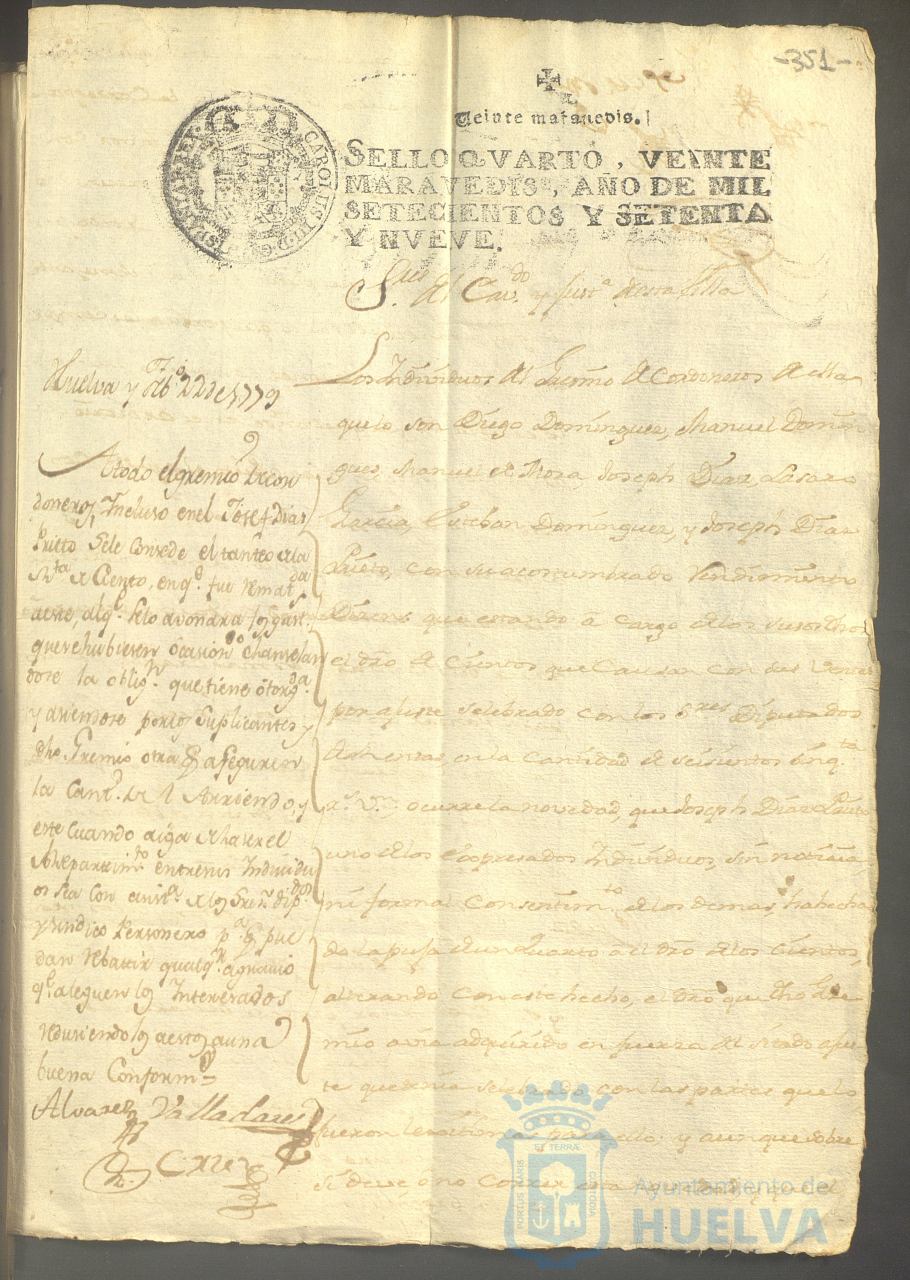 -351-
Veinte maravedis.
SELLO QVARTO, VEINTE
MARAVEDIS, AÑO DE MIL
SETECIENTOS Y SETENTA
Y NVEVE.
CAROLUS III D G HISPANIAR REX
S.res del Cav.do y Just.a desta Villa
Huelva y 22 de 1779
A todo el gremio de cor
doneros, Incluso en el Josef Dias
Prieto Sele Consede el tanteo de la
R.ta de Ciento, en q.e fue remat.da
a este, al q.e selo avondra los gast.s
que se hubiesen ocasion.do chanselan
dose la oblig.n que tiene otorg.da
y asiendose por los Suplicantes y
dho. Gremio otra q aseguren
la Cant.d del Arriendo, y
este Cuando aiga de haser el
Repartim.to entre sus Individu
os sea con
y sindico Personero p.a q pue
dan rebatir qualq.r agravio
q.e aleguen los Interesados
redusiendolos a estos a una
buena Conform.d
Alvarez Valladares
Cruz
Los Individuos del Gremio de Cordoneros de ella
que lo son Diego Dominguez, Manuel Domin
gues, Manuel de Mora Joseph Diaz, Lasaro
Garcia, Esteban Dominguez, y Joseph Diaz
Prieto, con su acostumbrado Rendimiento
Dizen que estando à cargo de los Susodhos
el dro de Cientos que Causan con sus Ventas
por ajuste selebrado con los S.res Diputados
de Rentas en la Cantidad de seisientos sinq.ta
r.s v.n ocurre la novedad, que Joseph Diaz Prieto
uno de los Expresados Individuos, sin noticia,
ni formal Consentim.to de los demas, ha hecho
do la puja de un Quarto à el dro de los Cientos,
alterando con este hecho, el dro que dho Gre
mio avia adquirido en fuerza del sitado ajus
te que tenia selebrado con las partes que lo
fueron lexitimas para ello; y aunque sobre
si deve, ò no Correr esta
PORTUS MARIS ET TERRÆ CUSTODIA
Ayuntamiento de
HUELVA